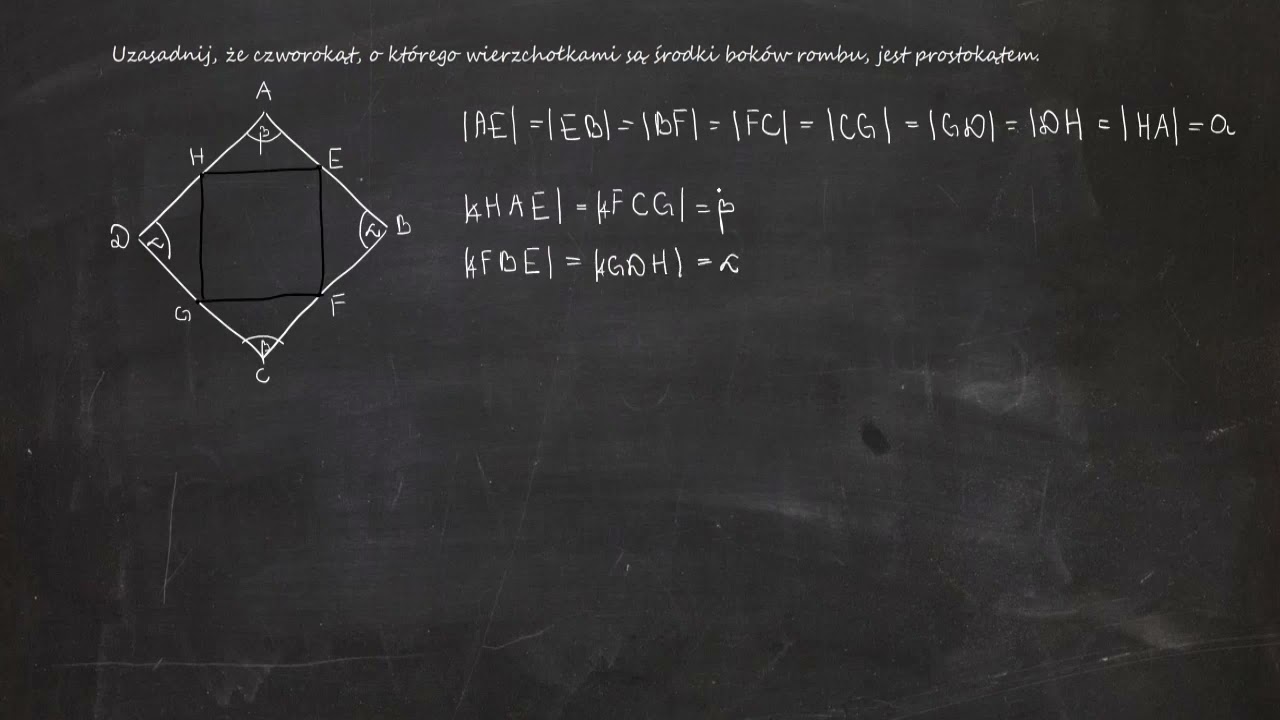 Uzasadnij, że czworokąt, o którego wierzchołkami są środki boków rombu, jest prostokątem.
A
β
|AE| = |EB| = |BF| = |FC| = |CG| = |GD| = |DH = |HA| = a
H E
|∡HAE| = |∡FCG| = β
D α α B
|∡FBE| = |∡GDH| = α
G F
β
C